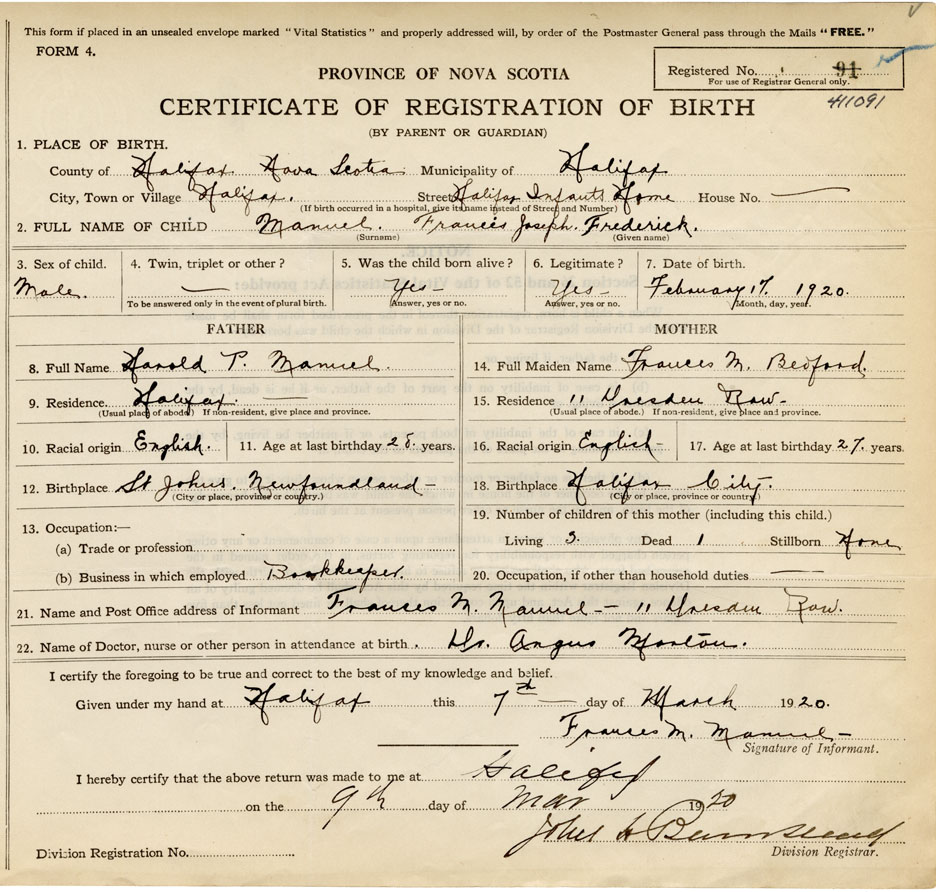 This form if placed in an unsealed envelope marked "Vital Statistics" and properly addressed will, by order of the Postmaster General pass through the Mails "FREE."
FORM 4.
PROVINCE OF NOVA SCOTIA
Registered No. 91
For use of Registrar General only.
CERTIFICATE OF REGISTRATION OF BIRTH
441091
(BY PARENT OR GUARDIAN)
1. PLACE OF BIRTH.
County of Halifax Nova Scotia Municipality of Halifax
City, Town or Village Halifax. Street Halifax Infants Home House No. —
(If birth occurred in a hospital, give its name instead of Street and Number)
2. FULL NAME OF CHILD Manuel. Francis Joseph. Frederick.
(Surname) (Given name)
3. Sex of child. 4. Twin, triplet or other? 5. Was the child born alive? 6. Legitimate? 7. Date of birth.
Male. — Yes- Yes February 17. 1920.
To be answered only in the event of plural birth. Answer, yes or no. Answer, yes or no. Month, day, year.
FATHER MOTHER
8. Full Name Harold P. Manuel. 14. Full Maiden Name Frances M. Bedford.
9. Residence. Halifax. — 15. Residence 11 Dresden Row-
(Usual place of abode) If non-resident, give place and province. (Usual place of abode.) If non-resident, give place and province.
10. Racial origin English. 11. Age at last birthday 28. years. 16. Racial origin English- 17. Age at last birthday 27. years.
12. Birthplace St Johns. Newfoundland- 18. Birthplace Halifax City.
(City or place, province or country.) (City or place, province or country)
13. Occupation:— 19. Number of children of this mother (including this child.)
(a) Trade or profession Living 3. Dead 1 Stillborn None
(b) Business in which employed Bookkeeper. 20. Occupation, if other than household duties —
21. Name and Post Office address of Informant Frances M. Manuel — 11 Dresden Row.
22. Name of Doctor, nurse or other person in attendance at birth. Dr. Angus Morton.
I certify the foregoing to be true and correct to the best of my knowledge and belief.
Given under my hand at Halifax this 7th — day of March 1920.
Frances M. Manuel-
Signature of Informant.
I hereby certify that the above return was made to me at Halifax
on the 9th day of Mar 1920
John
Division Registration No. Division Registrar.